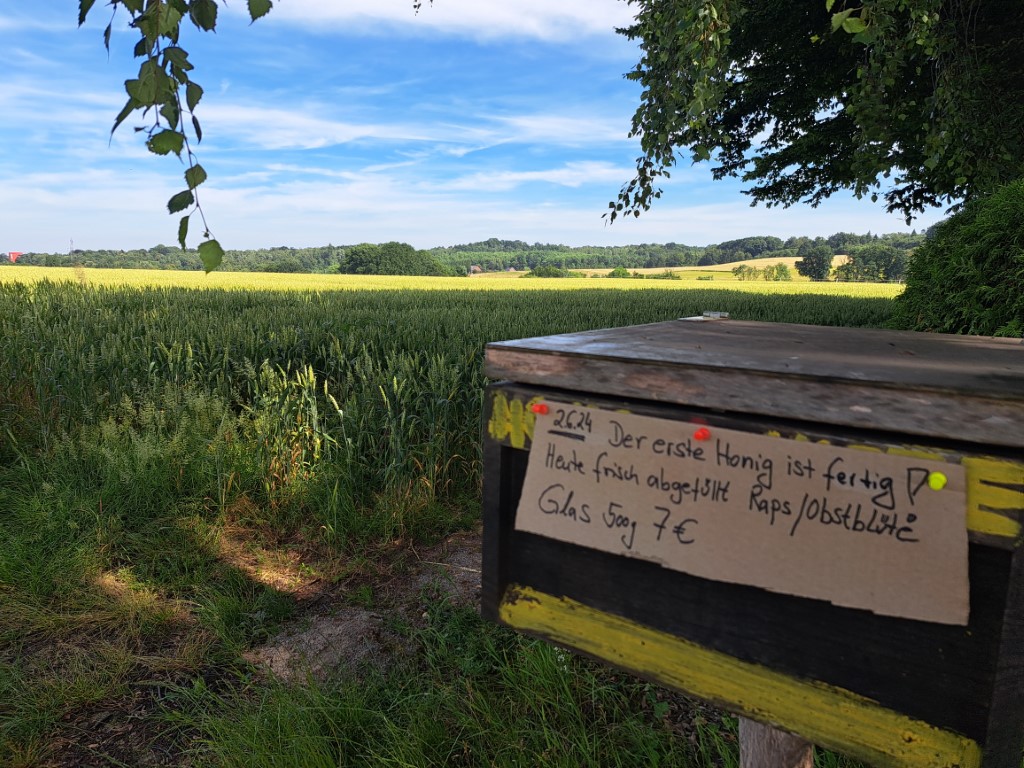 2.6.24 Der erste Honig ist fertig!
Heute frisch abgefüllt Raps/Obstblüte
Glas 500g 7€